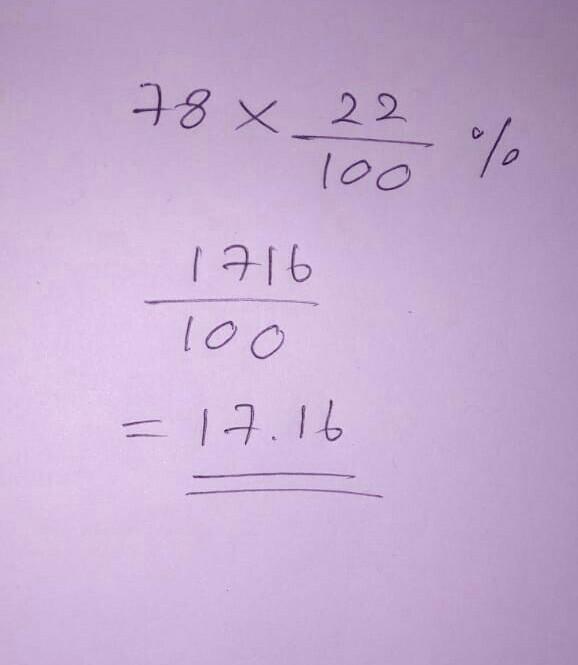 78 × 22/100 %
1716/100
= 17.16